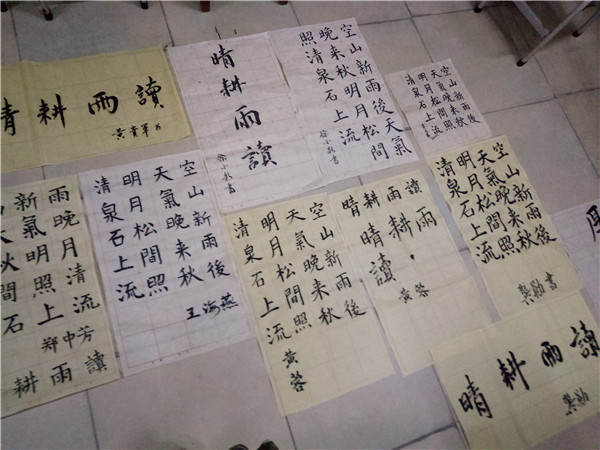 晴耕雨讀
晴耕雨讀
空山新雨後天氣
晚来秋明月松間
照清泉石上流
空山新雨後
天氣晚来秋
明月松間照
清泉石上流
雨晚月清流
新氣明照上
秋間石
讀
雨
耕
郑中芳
空山新雨後
天氣晚来秋
明月松間照
清泉石上流
王海燕
空山新雨後
天氣晚来秋
明月松間照
清泉石上流
黄蓉
晴耕雨讀
雨
耕
晴
讀
黄蓉
空山新雨後
天氣晚来秋
明月松間照
清泉石上流
晴耕雨讀